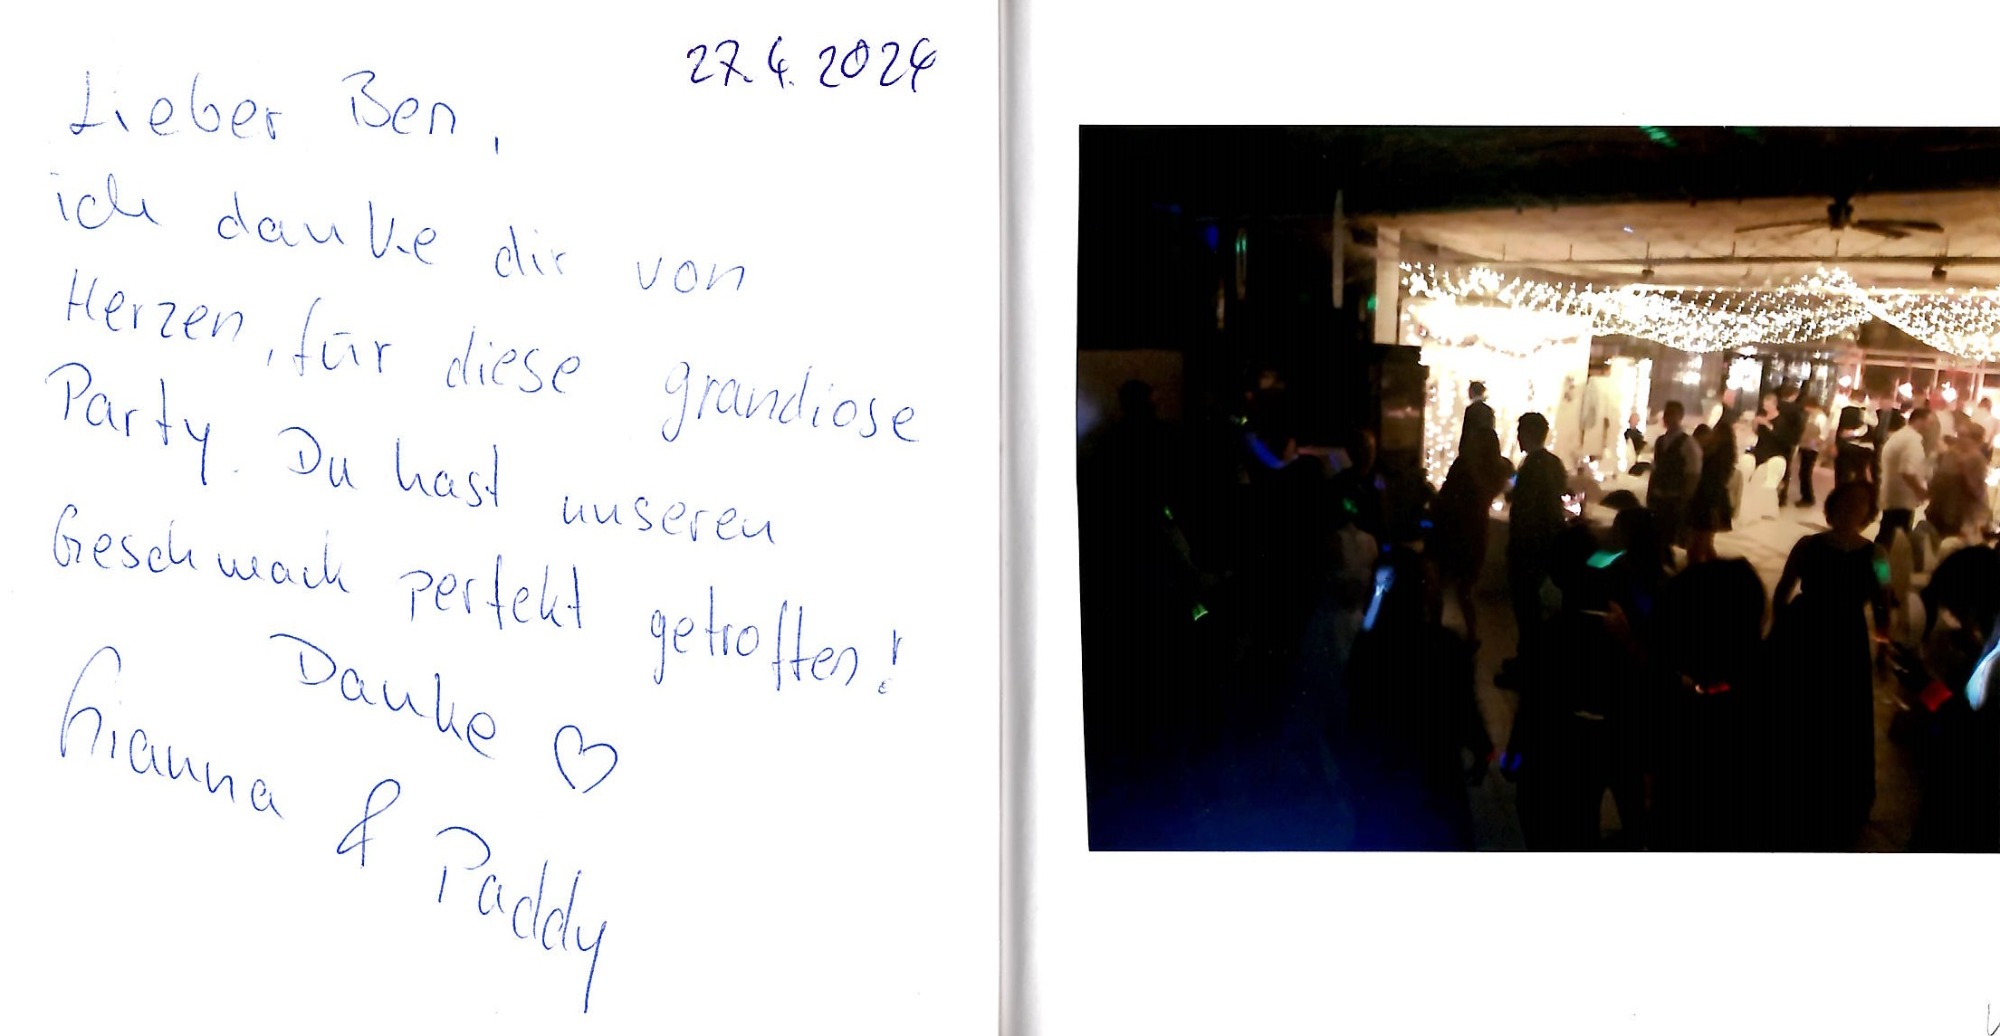 27.4.2024
Lieber Ben,
ich danke dir von
Herzen, für diese grandiose
Party. Du hast unseren
Geschmack perfekt getroffen!
Danke ♡
Gianna & Paddy